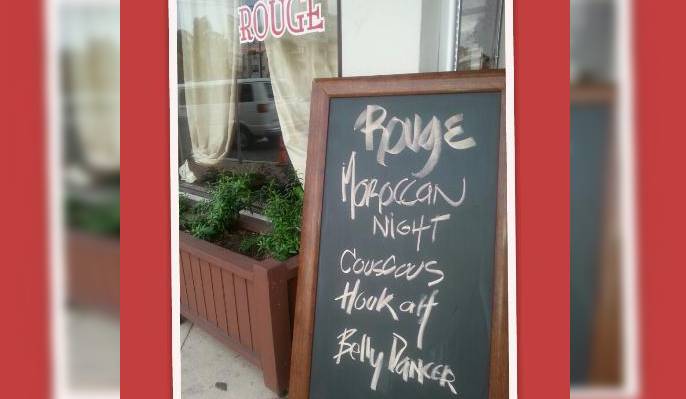 ROUGE
Rouge
Moroccan
Night
Couscous
Hookah
Belly Dancer